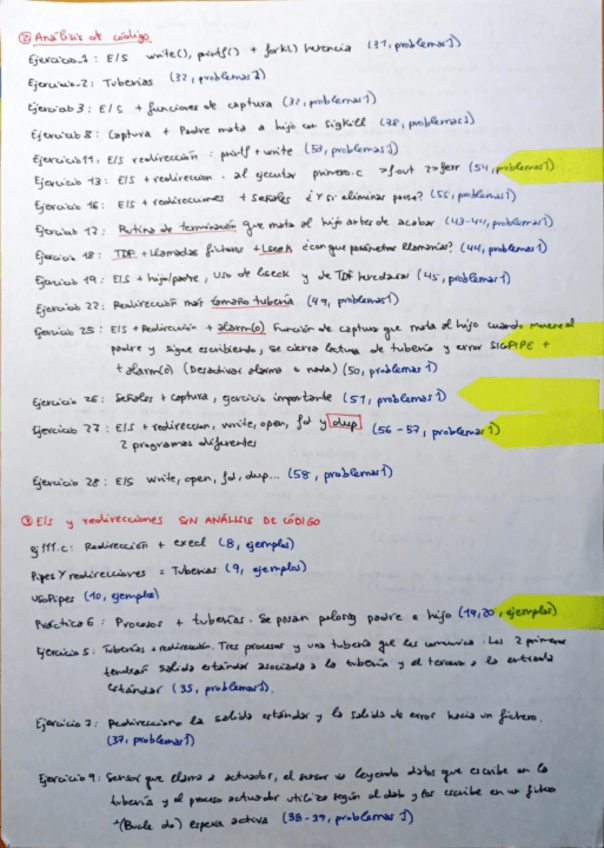 ② Análisis de código
Ejercicio 1: E/S write(), printf() + fork() herencia (31, problemas 1)
Ejercicio 2: Tuberías (32, problemas 2)
Ejercicio 3: E/S + funciones de captura (32, problemas 1)
Ejercicio 8: Captura + Padre mata a hijo con Sigkill (38, problemas 1)
Ejercicio 11, E/S redirección: printf + write (53, problemas 1)
Ejercicio 13: E/S + redireccion. al ejecutar primero.c >fout 2>ferr (54, problemas 1)
Ejercicio 16: E/S + redirecciones + señales ¿Y si eliminas pause? (55, problemas 1)
Ejercicio 17: Rutina de terminación que mata al hijo antes de acabar (43-44, problemas 1)
Ejercicio 18: TDF + llamadas ficheros + Lseek ¿con que parámetros llamarías? (44, problemas 1)
Ejercicio 19: E/S + hijo/padre, uso de lseek y de TDF heredadas (45, problemas 1)
Ejercicio 22: Redirección más tamaño tubería (49, problemas 1)
Ejercicio 25: E/S + Redirección + alarm(0) Función de captura que mata al hijo cuando muere el
padre y sigue escribiendo, se cierra lectura de tubería y error SIGPIPE +
+ alarm(0) (Desactivar alarma o nada) (50, problemas 1)
Ejercicio 26: Señales + captura, ejercicio importante (51, problemas 1)
Ejercicio 27: E/S + redireccion, write, open, fd y dup (56-57, problemas 1)
2 programas diferentes
Ejercicio 28: E/S write, open, fd, dup... (58, problemas 1)
③ E/S y redirecciones SIN ANÁLISIS DE CÓDIGO
ej111.c: Redirección + execl (8, ejemplos)
Pipes Y redirecciones = Tuberías (9, ejemplos)
USOPipes (10, ejemplos)
Práctica 6: Procesos + tuberías. Se pasan padre e hijo (19,20, ejemplos)
Ejercicio 5: Tuberías + redirección. Tres procesos y una tubería que les comunica. Los 2 primeros
tendrán salida estándar asociada a la tubería y el tercero a la entrada
estándar (35, problemas 1).
Ejercicio 7: Redirecciono la salida estándar y la salida de error hacia un fichero.
(37, problemas 1)
Ejercicio 9: Sensor que llama a actuador, el sensor va leyendo datos que escribe en la
tubería y el proceso actuador utiliza según el dato y los escribe en un fichero
(Bucle do) espera activa (38-39, problemas 1)